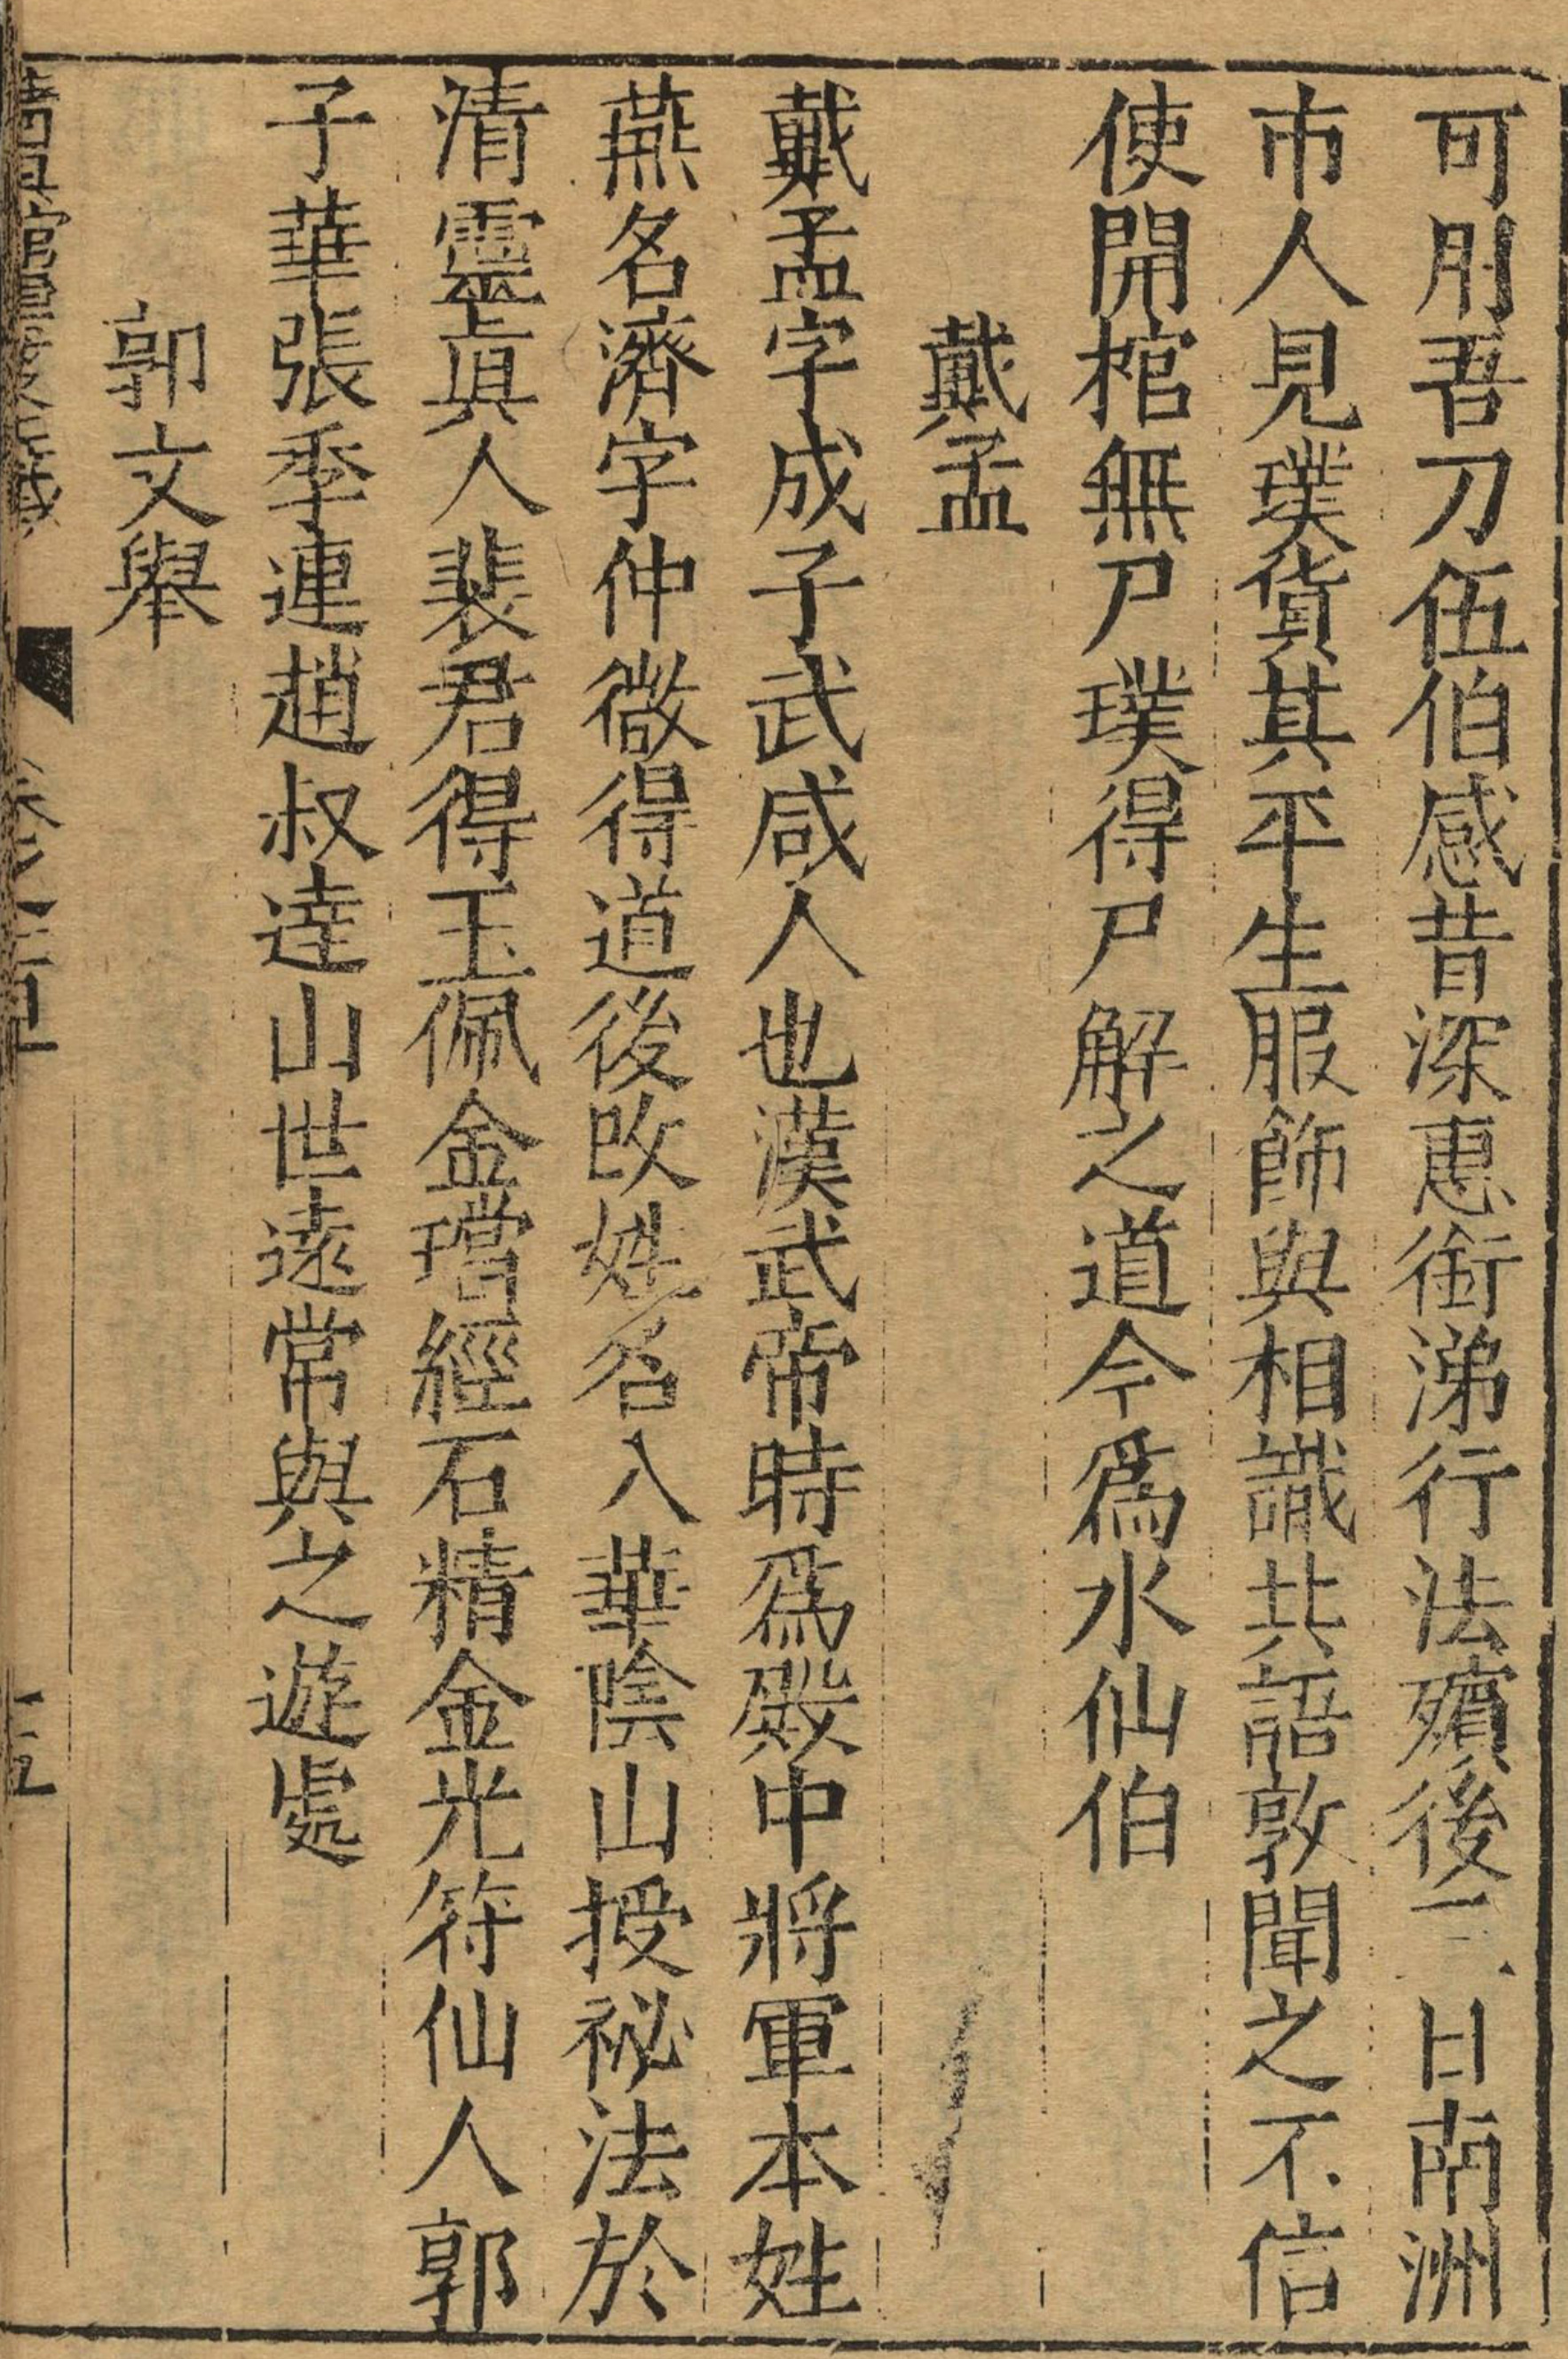 可用吾刀伍伯感昔深惠銜涕行法殯後三日南洲
市人見璞貨其平生服飾與相識共語敦聞之不信
使開棺無尸璞得尸解之道今爲水仙伯
戴孟
戴孟字成子武咸人也漢武帝時爲殿中將軍本姓
燕名濟字仲微得道後改姓名入華陰山授祕法於
清靈眞人裴君得玉佩金璫經石精金光符仙人郭
子華張季連趙叔達山世遠常與之遊處
郭文舉